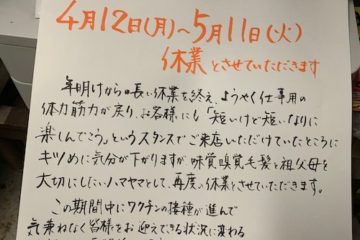 4月12日(月)～5月11日(火)
休業とさせていただきます
年明けからの長い休業を終え、ようやく仕事用の
体力筋力が戻り、お客様にも「短いけど短いなりに
楽しんでこう」というスタンスでご来店いただけていたところに
キツめに気分が下がりますが味覚嗅覚毛髪と祖父母を
大切にしたいハマヤマとして、再度、休業とさせていただきます。
この期間中にワクチンの接種が進んで
気兼ねなく皆様をお迎えできる状況に変わる